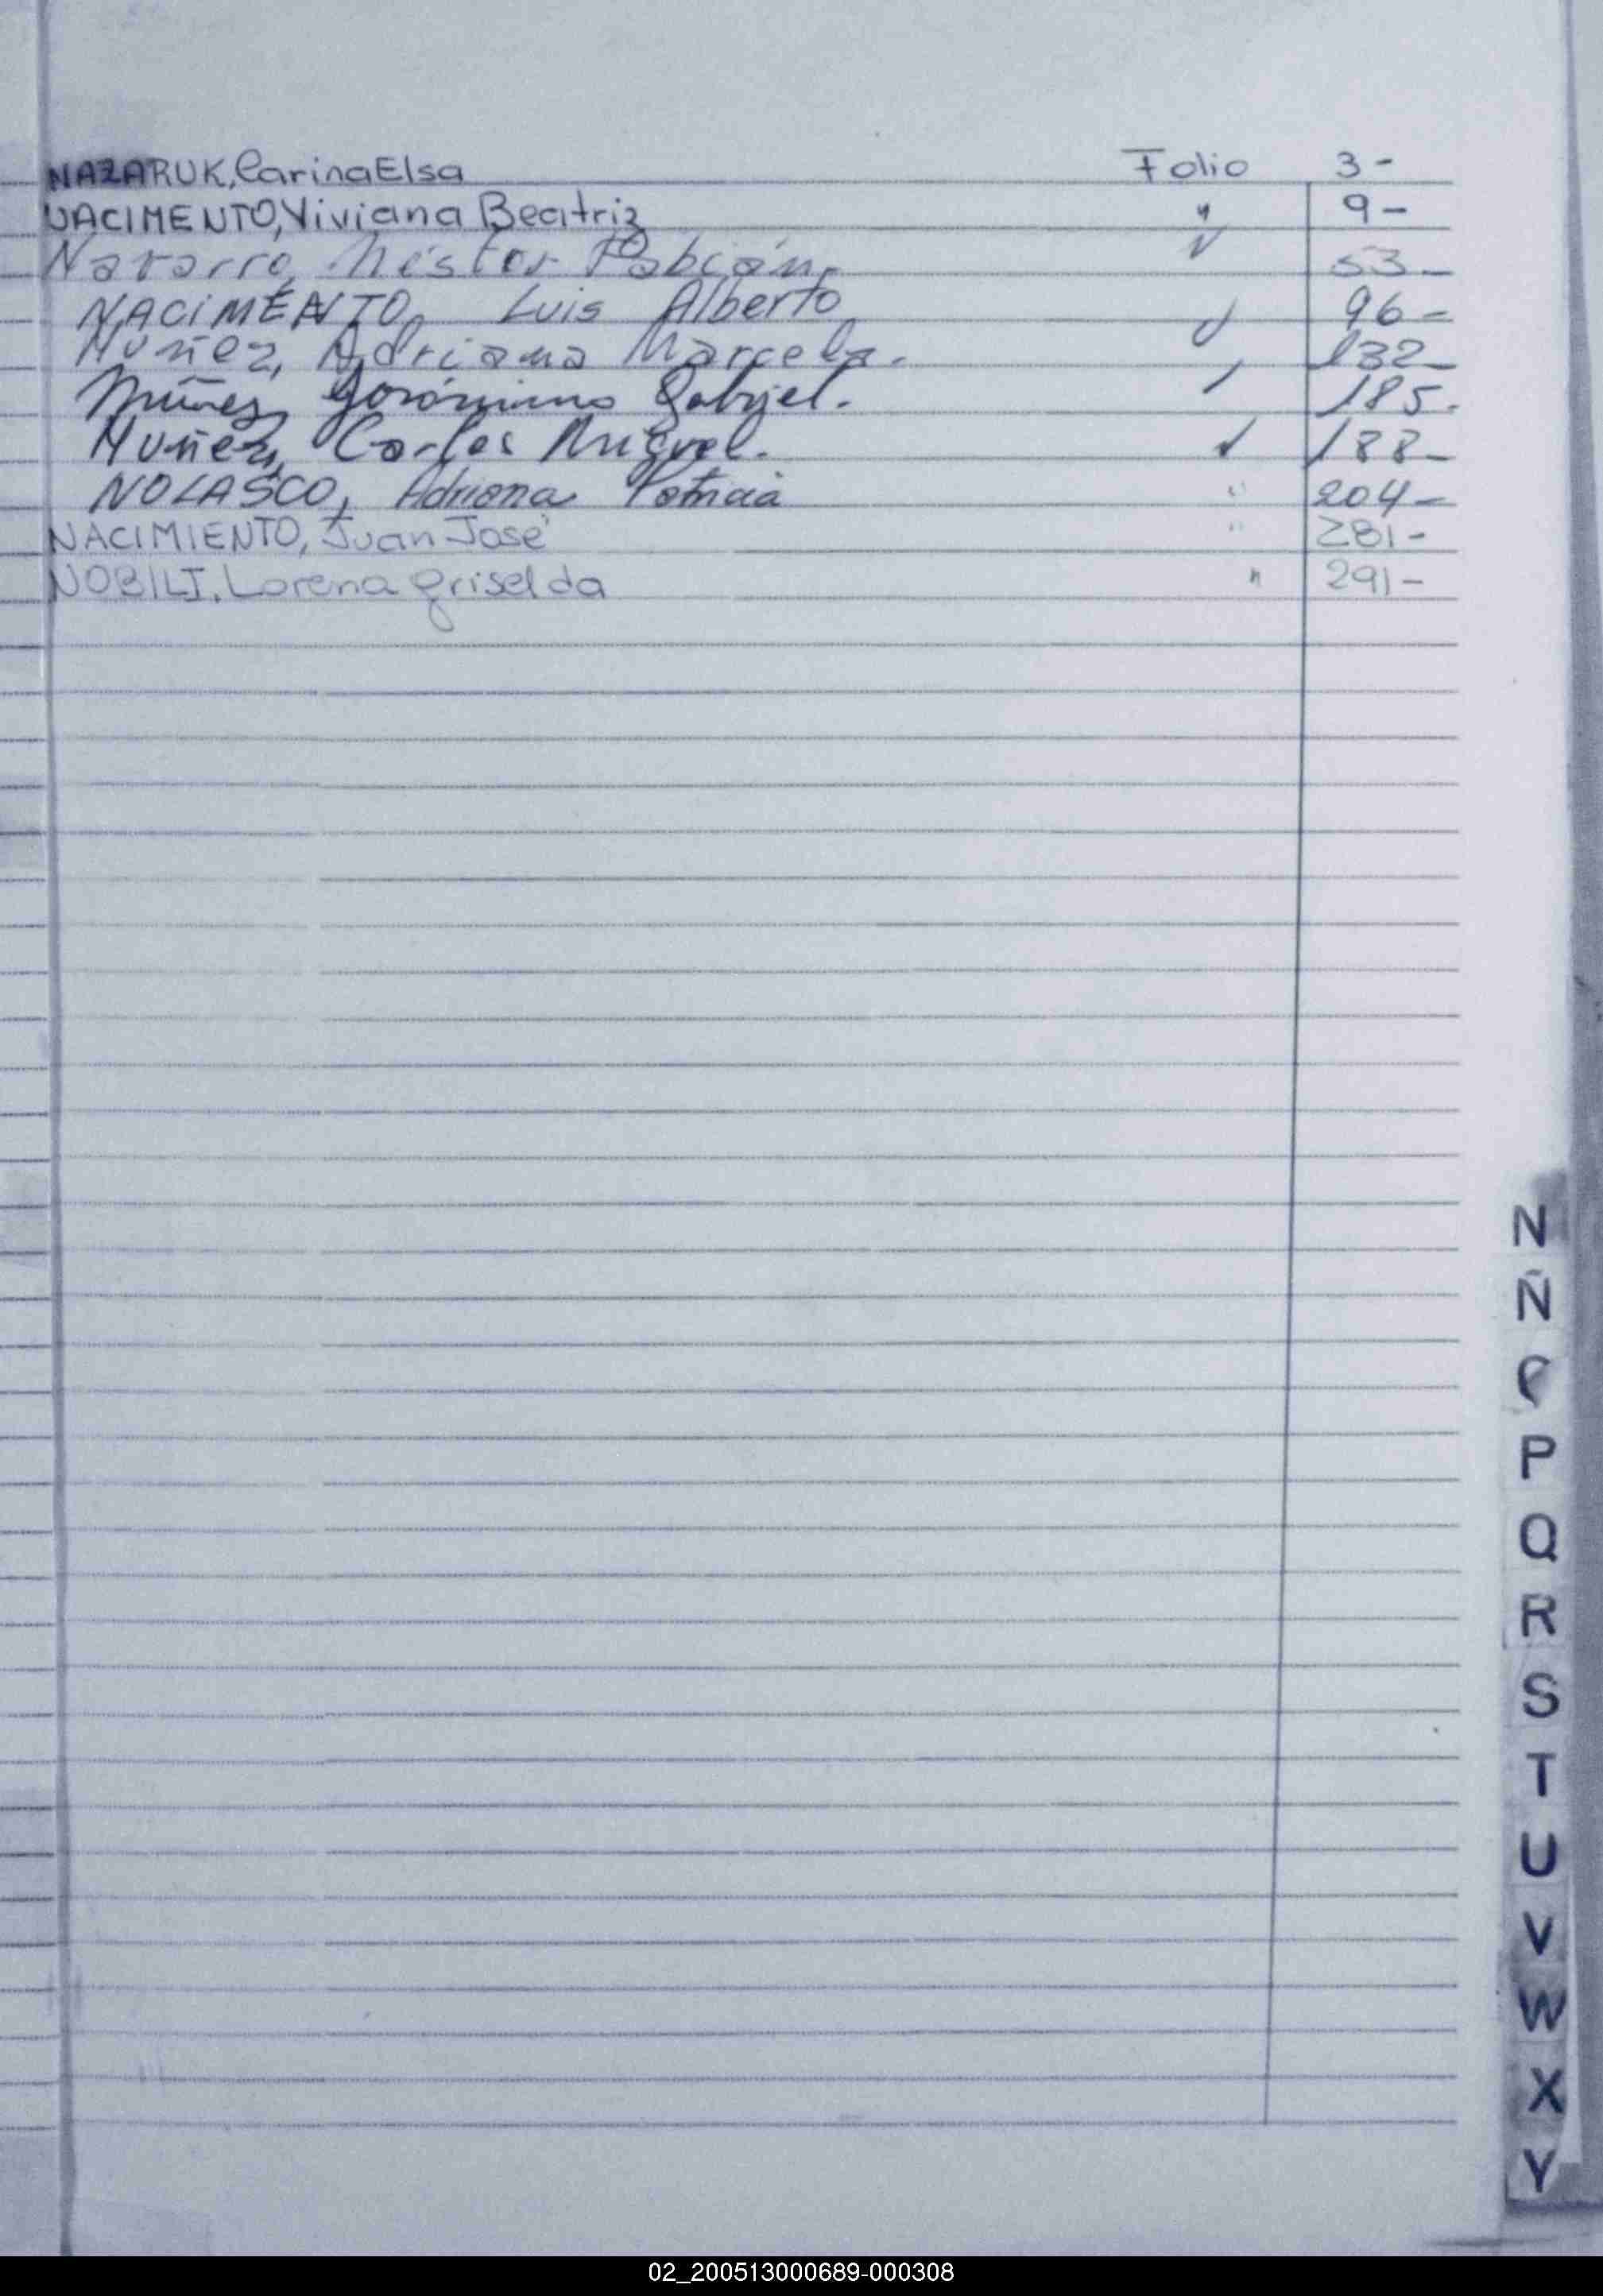 NAZARUK, Carina Elsa Folio 3-
NACIMENTO, Viviana Beatriz " 9-
Navarro, Néstor Fabián, 53-
NACIMENTO, Luis Alberto 96-
Nuñez, Adriana Marcela. 132-
Núñez, Gerónimo Gabriel. 185.
Nuñez, Carlos Miguel. 188-
NOLASCO, Adriana Patricia " 204-
NACIMIENTO, Juan José " 281-
NOBILI, Lorena Griselda " 291-
N
Ñ
P
Q
R
S
T
U
V
W
X
Y
02_200513000689-000308